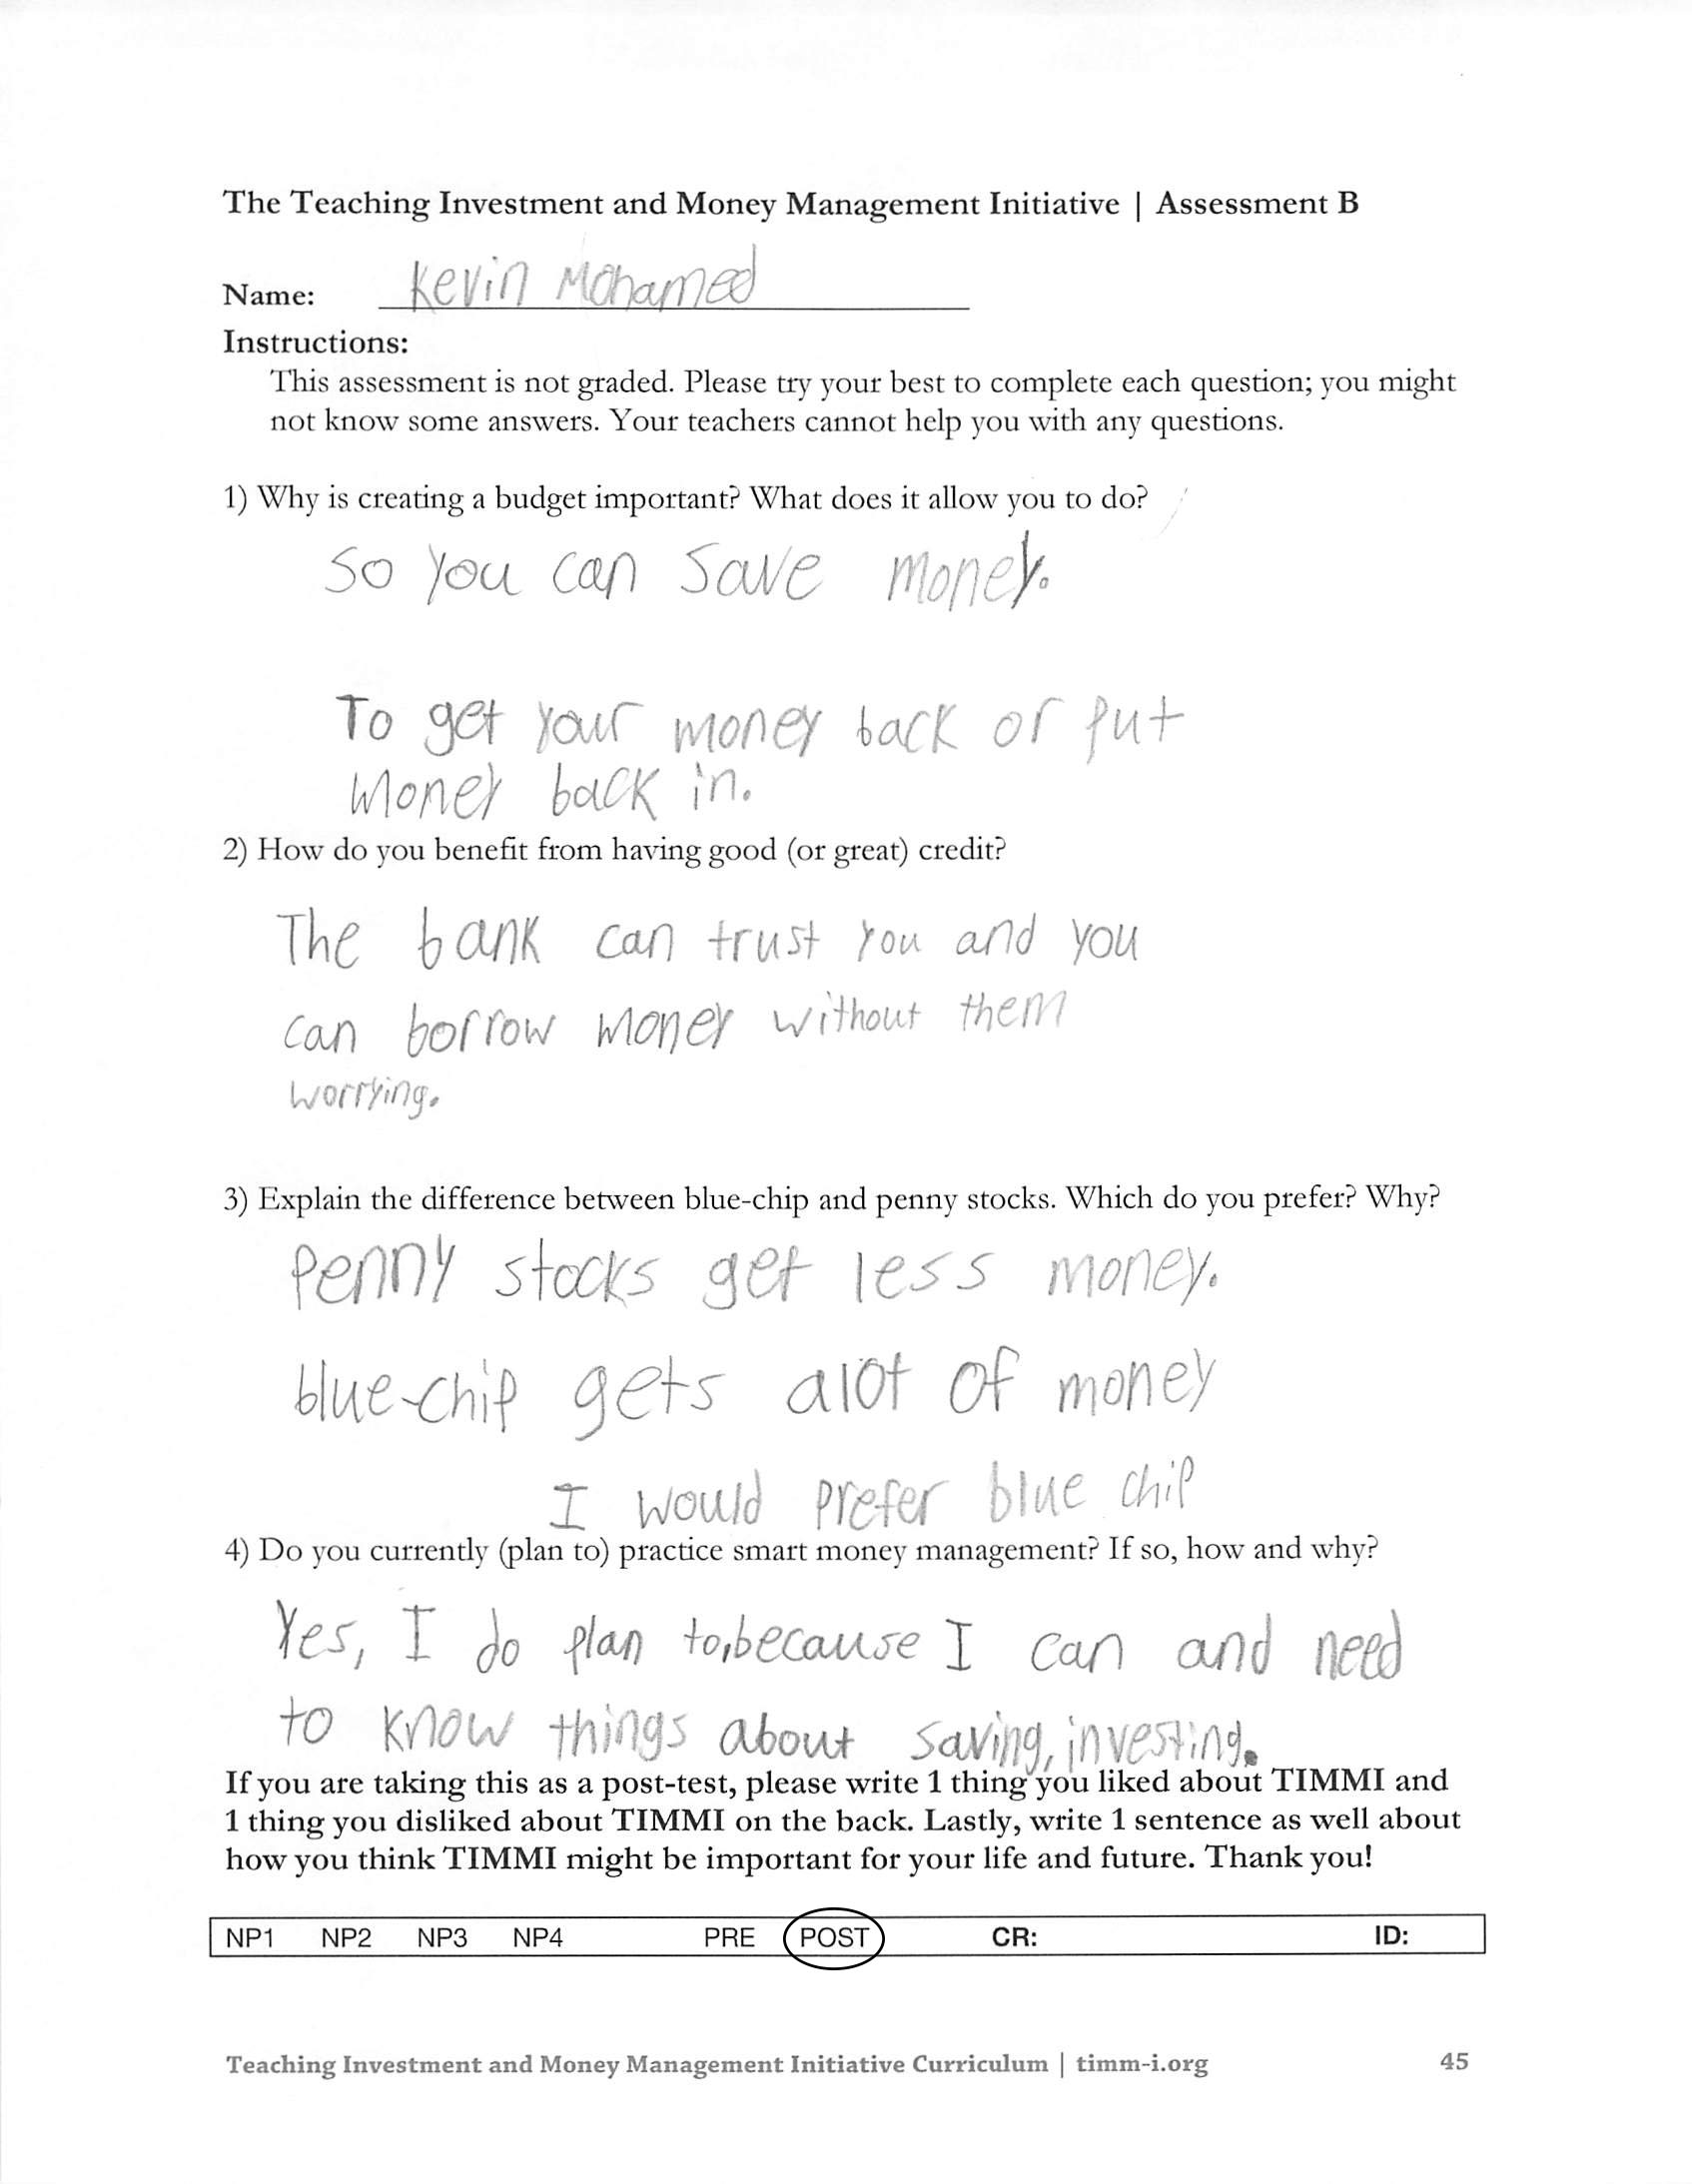 The Teaching Investment and Money Management Initiative | Assessment B
Name: Kevin Mohamed
Instructions:
This assessment is not graded. Please try your best to complete each question; you might
not know some answers. Your teachers cannot help you with any questions.
1) Why is creating a budget important? What does it allow you to do?
So you can save money.
To get your money back or put
money back in.
2) How do you benefit from having good (or great) credit?
The bank can trust you and you
can borrow money without them
worrying.
3) Explain the difference between blue-chip and penny stocks. Which do you prefer? Why?
Penny stocks get less money.
blue-chip gets alot of money
I would prefer blue chip
4) Do you currently (plan to) practice smart money management? If so, how and why?
Yes, I do plan to, because I can and need
to know things about saving, investing.
If you are taking this as a post-test, please write 1 thing you liked about TIMMI and
1 thing you disliked about TIMMI on the back. Lastly, write 1 sentence as well about
how you think TIMMI might be important for your life and future. Thank you!
NP1 NP2 NP3 NP4 PRE POST CR: ID:
Teaching Investment and Money Management Initiative Curriculum | timm-i.org 45